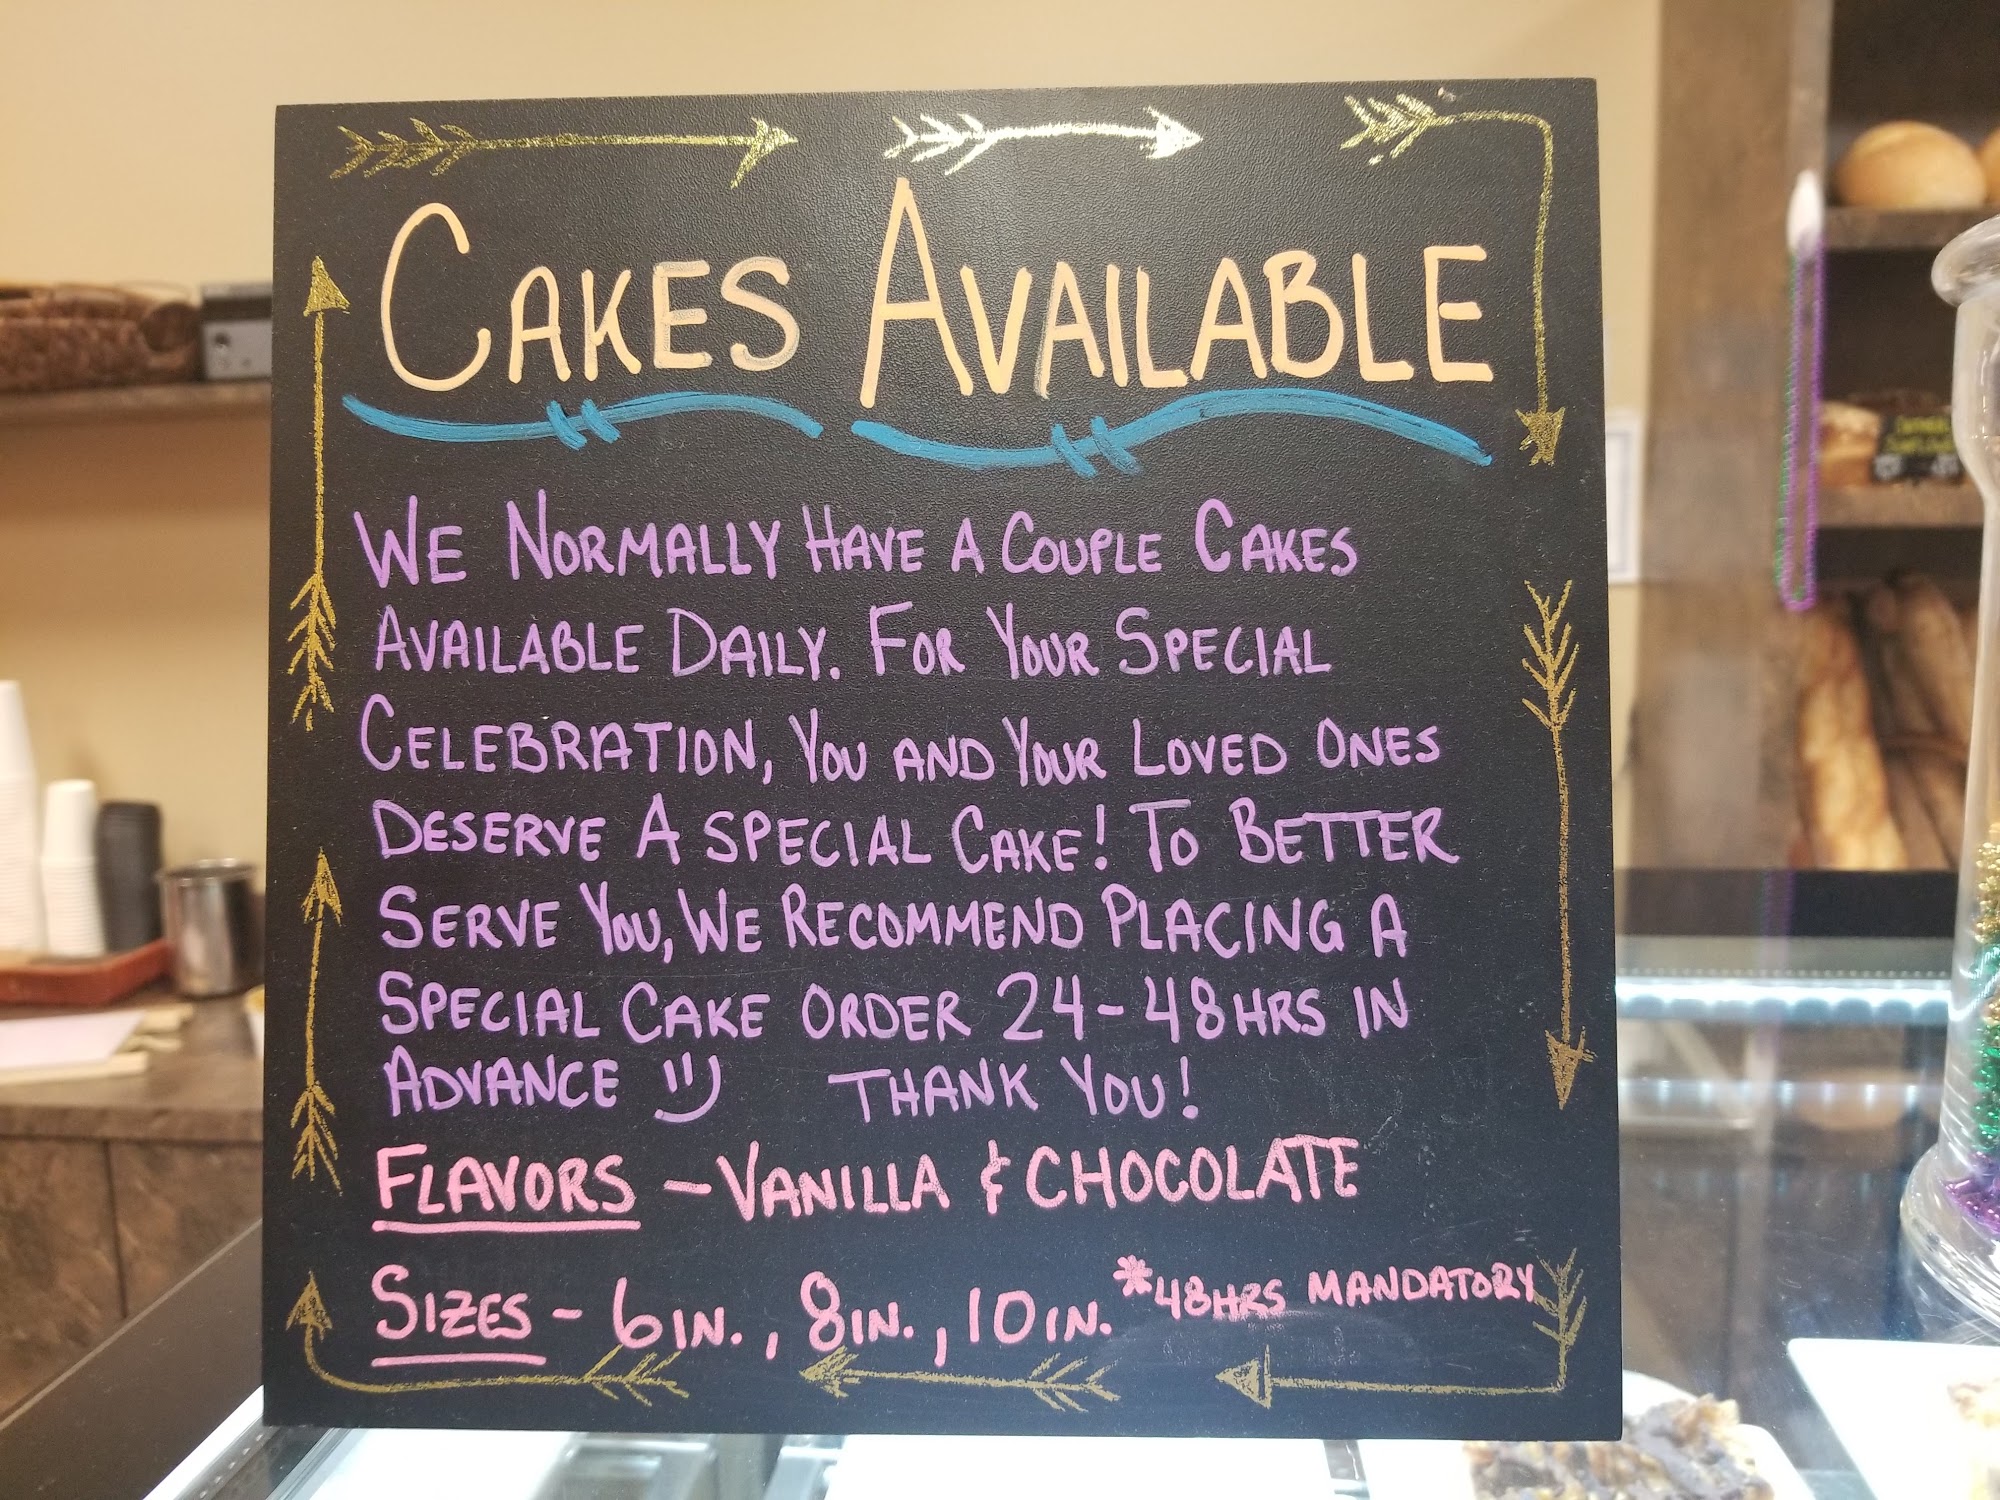 CAKES AVAILABLE
WE NORMALLY HAVE A COUPLE CAKES
AVAILABLE DAILY. FOR YOUR SPECIAL
CELEBRATION, YOU AND YOUR LOVED ONES
DESERVE A SPECIAL CAKE! TO BETTER
SERVE YOU, WE RECOMMEND PLACING A
SPECIAL CAKE ORDER 24-48HRS IN
ADVANCE THANK YOU!
FLAVORS - VANILLA & CHOCOLATE
SIZES - 6IN., 8IN., 10IN. *48HRS MANDATORY